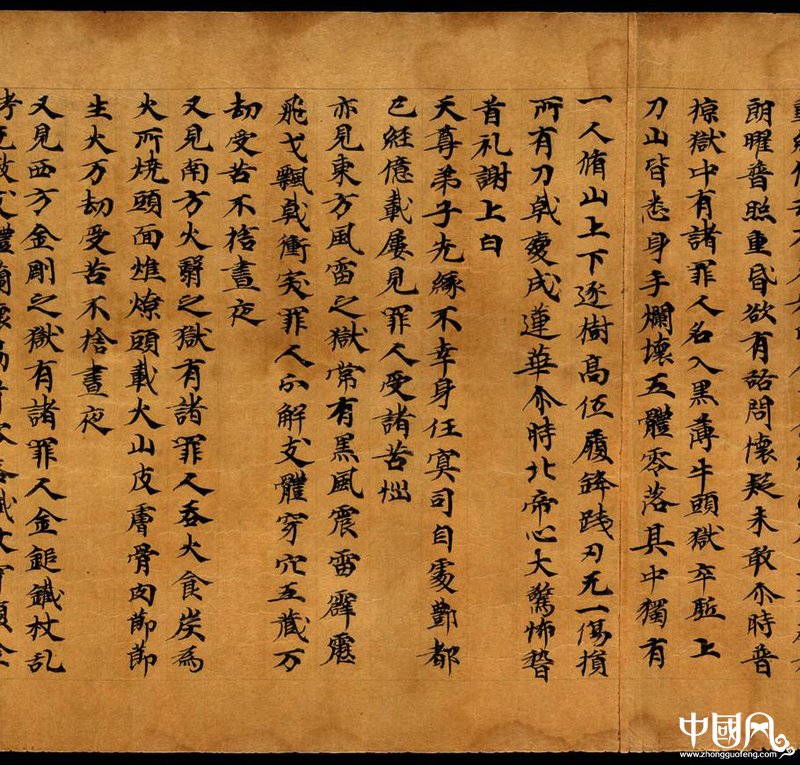 朗曜普照重昏欲有諮問懷疑未敢尒時普
掠獄中有諸罪人名入黑薄牛頭獄卒駈上
刀山皆悉身手爛壞五體零落其中獨有
一人脩山上下逐樹高伍履鋒踐刃无一傷損
所有刀戟變成蓮華尒時北帝心大驚怖
首礼謝上白
天尊弟子先緣不幸身任冥司自處酆都
已經億載屢見罪人受諸苦惱
亦見東方風雷之獄常有黑風震雷霹靂
飛戈飄戟衝突罪人解支體穿穴五藏万
劫受苦不捨晝夜
又見南方火翳之獄有諸罪人吞火食炭為
火所燒頭面燋燎頭載火山皮膚骨肉節節
生火万劫受苦不捨晝夜
又見西方金剛之獄有諸罪人金鎚鐵杖乱
中國风
www.zhongguofeng.com